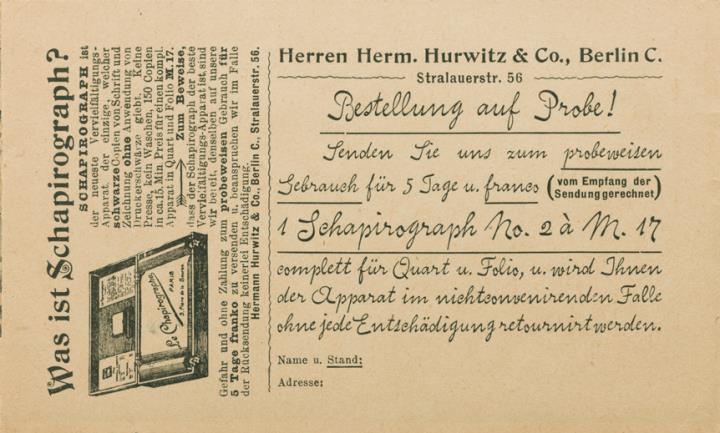 Was ist Schapirograph?
SCHAPIROGRAPH ist
der neueste Vervielfältigungs-
Apparat, der einzige, welcher
schwarze Copien von Schrift und
Zeichnung ohne Anwendung von
Druckerschwärze giebt. Keine
Presse, kein Waschen, 150 Copien
in ca. 15 Min. Preis für einen kompl.
Apparat in Quart und Folio M. 17.
Zum Beweise,
dass der Schapirograph der beste
Vervielfältigungs-Apparat ist, sind
wir bereit, denselben auf unsere
Gefahr und ohne Zahlung zum probeweisen Gebrauch für
5 Tage franko zu versenden u. beanspruchen wir im Falle
der Rücksendung keinerlei Entschädigung.
Hermann Hurwitz & Co., Berlin C., Stralauerstr. 56.
Le Chapirographe
PARIS
Herren Herm. Hurwitz & Co., Berlin C.
Stralauerstr. 56
Bestellung auf Probe!
Senden Sie uns zum probeweisen
Gebrauch für 5 Tage u. franco (vom Empfang der Sendung gerechnet)
1 Schapirograph No. 2 à M. 17
complett für Quart u. Folio, u. wird Ihnen
der Apparat im nichtconvenirenden Falle
ohne jede Entschädigung retournirt werden.
Name u. Stand:
Adresse: